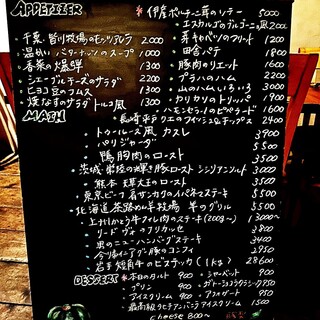 APPETIZER
千葉 皆川牧場のモッツァレラ 2000
温かい バターナッツのスープ 1000
香菜の爆弾 1300
シェーブルチーズのサラダ 2200
ヒヨコ豆のフムス 1300
焼なすのサラダ トルコ風 1300
伊産ポルチーニ茸のソテー 5000
エスカルゴのブルゴーニュ風 2000
1200
田舎パテ 1800
豚肉のリエット 1600
プラハのハム 2200
山のハムいろいろ 3000
カリカリのトリッパ 1900
ハモンセラーノとピペラード 1600
長崎 平戸クエのフィッシュ&チップス 2400
MAIN
トゥールーズ風 カスレ 3900
パリジャーダ 5500
鴨胸肉のロースト 3500
茨城 常陸の輝き豚ロースト シシリアンソルト 3500
熊本 ロースト 5500
東京ビーフ
北海道 茶路めん羊牧場 羊のグリル
上州 牛フィレ肉のステーキ (200g~)
リードヴォーのフリカッセ 3800
ハンバーグステーキ 3400
豚のコンフィ 2950
岩手 短角牛のビステッカ (1kg) 28600
DESSERT
本日のタルト 900
プリン 900
アイスクリーム 900
シャーベット 900
ガトーショコラクラシック
アフォガート 950
アイスクリーム 1500
cheese 800~